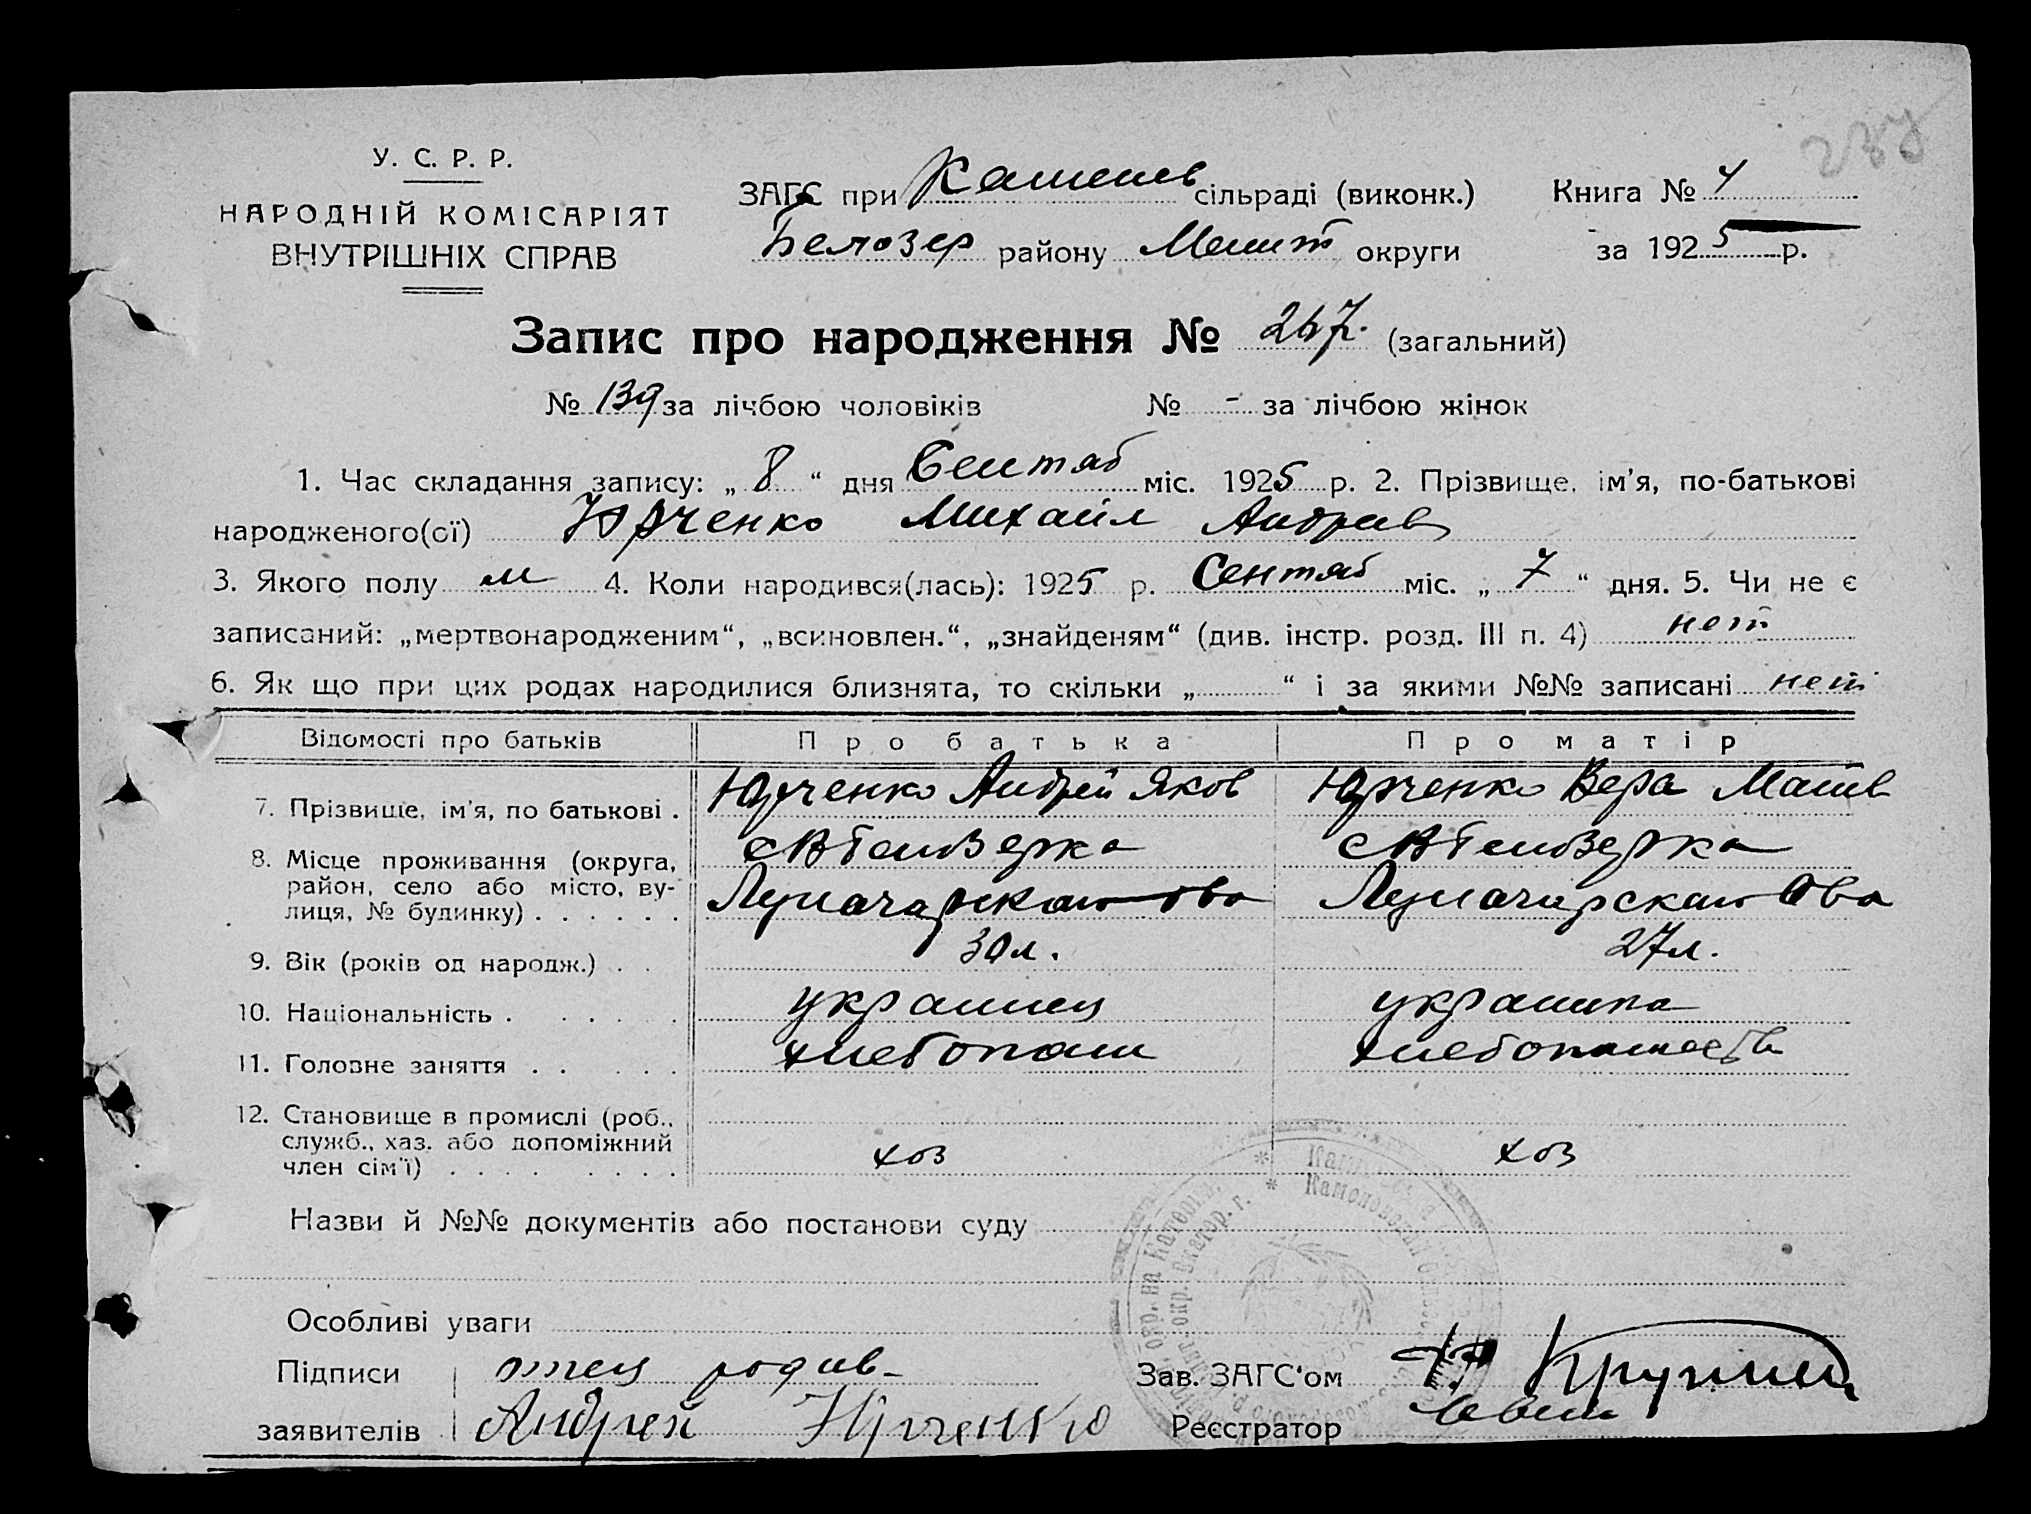 У. С. Р. Р.
НАРОДНІЙ КОМІСАРІЯТ
ВНУТРІШНІХ СПРАВ
ЗАГС при Каменсв сільраді (виконк.)
Белозер району Мелит округи
Книга № 4
за 1925 р.
Запис про народження № 267. (загальний)
№ 139 за лічбою чоловіків № - за лічбою жінок
1. Час складання запису: „ 8 “ дня Сентяб міс. 1925 р. 2. Прізвище, ім'я, по-батькові
народженого(ої) Юрченко Михаил Андреев
3. Якого полу м 4. Коли народився(лась): 1925 р. Сентяб міс. „ 7 “ дня. 5. Чи не є
записаний: „мертвонародженим“, „всиновлен.“, „знайденям“ (див. інстр. розд. III п. 4) нет
6. Як що при цих родах народилися близнята, то скільки „ “ і за якими №№ записані нет
Відомості про батьків Про батька Про матір
7. Прізвище, ім'я, по батькові . Юрченко Андрей Яков Юрченко Вера Матв
8. Місце проживання (округа,
район, село або місто, ву-
лиця, № будинку) . . . . . .
9. Вік (років од народж.) . . 30 л. 27 л.
10. Національність . . . . . украинец украинка
11. Головне заняття . . . . . хлебопаш хлебопашеств
12. Становище в промислі (роб.,
служб., хаз. або допоміжний
член сім'ї) . . . . . . . . хоз хоз
Назви й №№ документів або постанови суду
Особливі уваги
Підписи отец родив-
заявителів Андрей Юрченко
Зав. ЗАГС'ом
Реєстратор